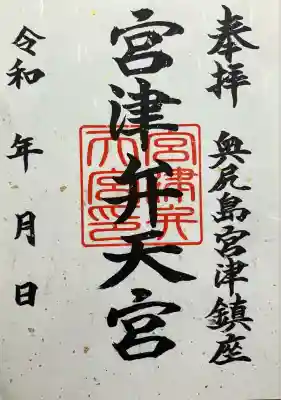 奉拝
奥尻島宮津鎮座
宮津弁天宮
宮津弁
天宮印
令和 年 月 日